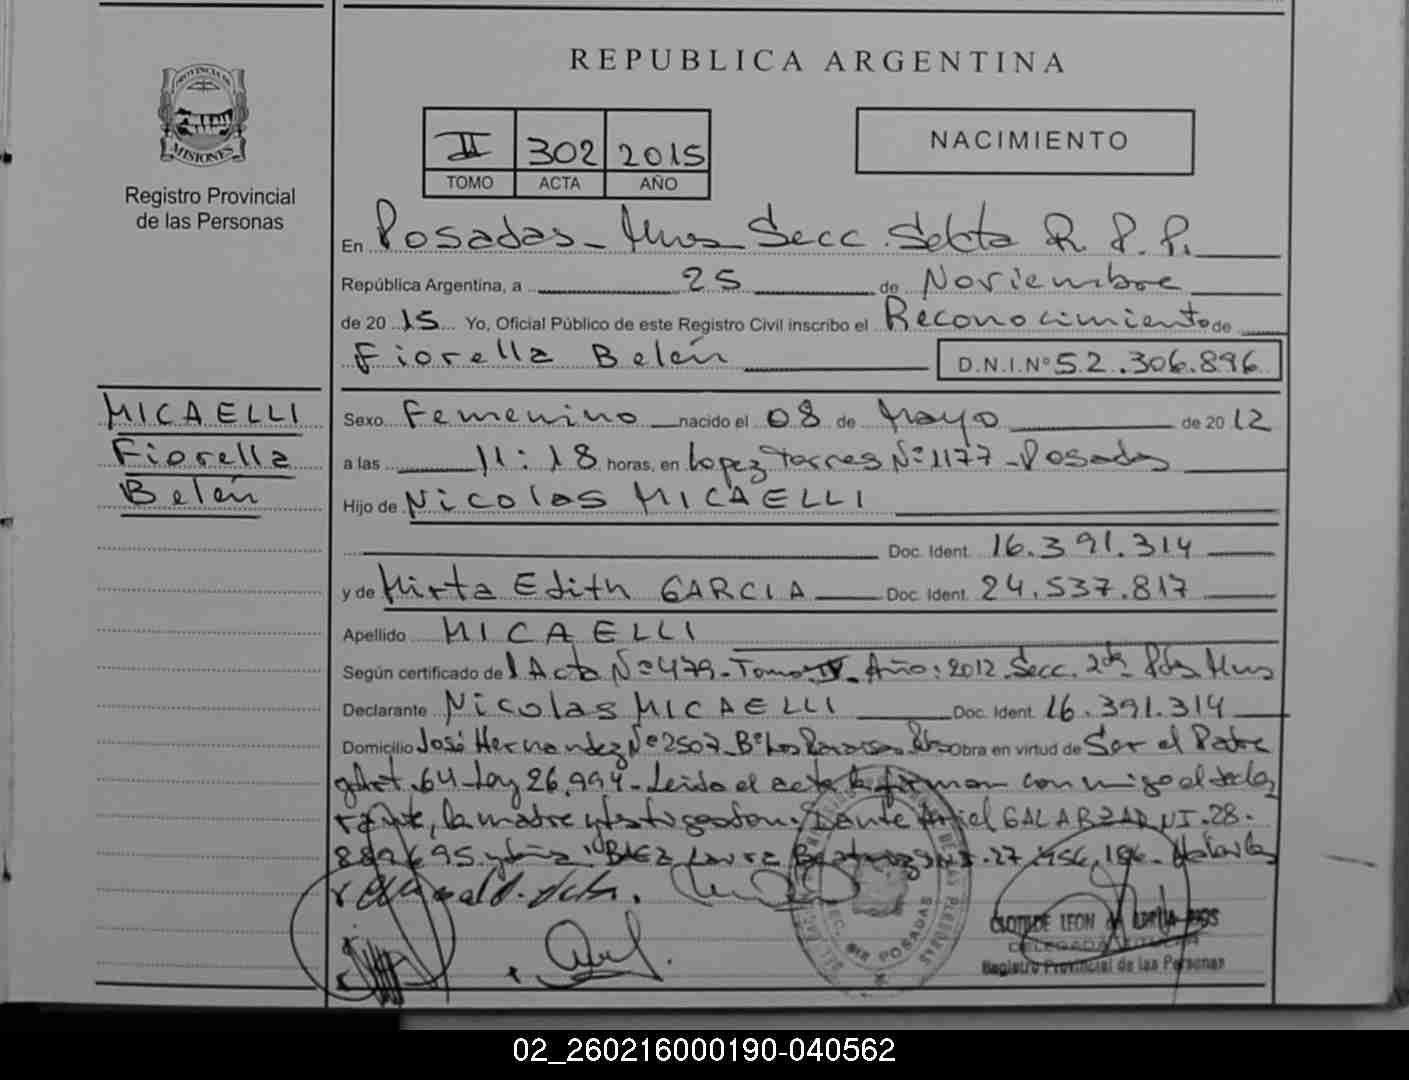 REPUBLICA ARGENTINA
PROVINCIA DE
MISIONES
Registro Provincial
de las Personas
II 302 2015
TOMO ACTA AÑO
NACIMIENTO
En Posadas - Mnes Secc. Sexta R. P. P.
República Argentina, a 25 de Noviembre
de 20 15 Yo, Oficial Público de este Registro Civil inscribo el Reconocimiento de
Fiorella Belén D.N.I.Nº 52.306.896
MICAELLI
Fiorella
Belén
Sexo Femenino nacido el 08 de Mayo de 20 12
a las 11:18 horas, en Lopez Torres Nº 1177 - Posadas
Hijo de Nicolas MICAELLI
Doc. Ident. 16.391.314
y de Mirta Edith GARCIA Doc. Ident. 24.537.817
Apellido MICAELLI
Según certificado de l Acta Nº 479 - Tomo IV - Año: 2012 Secc. 2da Pdas Mnes
Declarante Nicolas MICAELLI Doc. Ident. 16.391.314
Domicilio José Hernandez Nº 2507 Bº Los Obra en virtud de Ser el Padre
art. 64 Ley 26.994 - Leida el acta la firman conmigo el decla
rante, la madre y testigos Dante GALARZA D.N.I. 28.
BAEZ Laura 27
SEC. 6ta POSADAS
CLOTILDE LEON
DELEGADA
Registro Provincial de las Personas
02_260216000190-040562